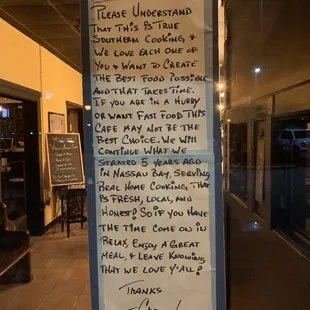 Please Understand
That This is True
Southern Cooking &
We love each one of
You & Want to Create
The Best Food Possible
And That Takes Time.
If you are in a Hurry
or Want Fast Food This
Cafe May Not Be the
Best Choice. We Will
Continue What We
Started 5 years ago
in Nassau Bay, Serving
Real Home Cooking That
is Fresh, Local, and
Honest! So if you Have
the Time Come on in
Relax, Enjoy a Great
Meal, & Leave Knowing
That we Love Y'all!
Thanks